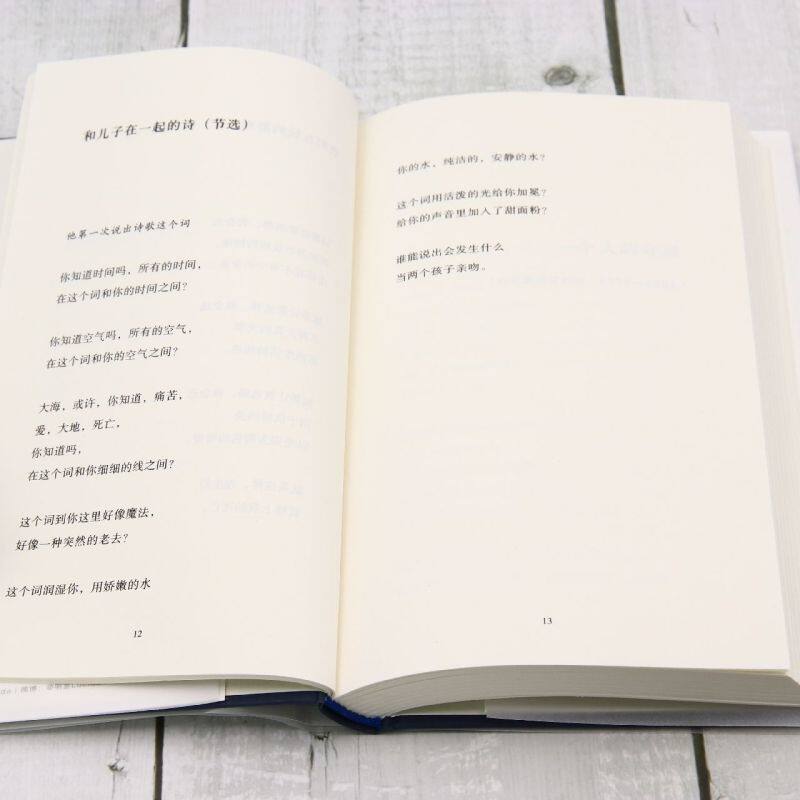 和儿子在一起的诗（节选）
他第一次说出诗歌这个词
你知道时间吗，所有的时间，
在这个词和你的时间之间？
你知道空气吗，所有的空气，
在这个词和你的空气之间？
大海，或许，你知道，痛苦，
爱，大地，死亡，
你知道吗，
在这个词和你细细的线之间？
这个词到你这里好像魔法，
好像一种突然的老去？
这个词润湿你，用娇嫩的水
12
你的水，纯洁的，安静的水？
这个词用活泼的光给你加冕？
给你的声音里加入了甜面粉？
谁能说出会发生什么
当两个孩子亲吻。
13